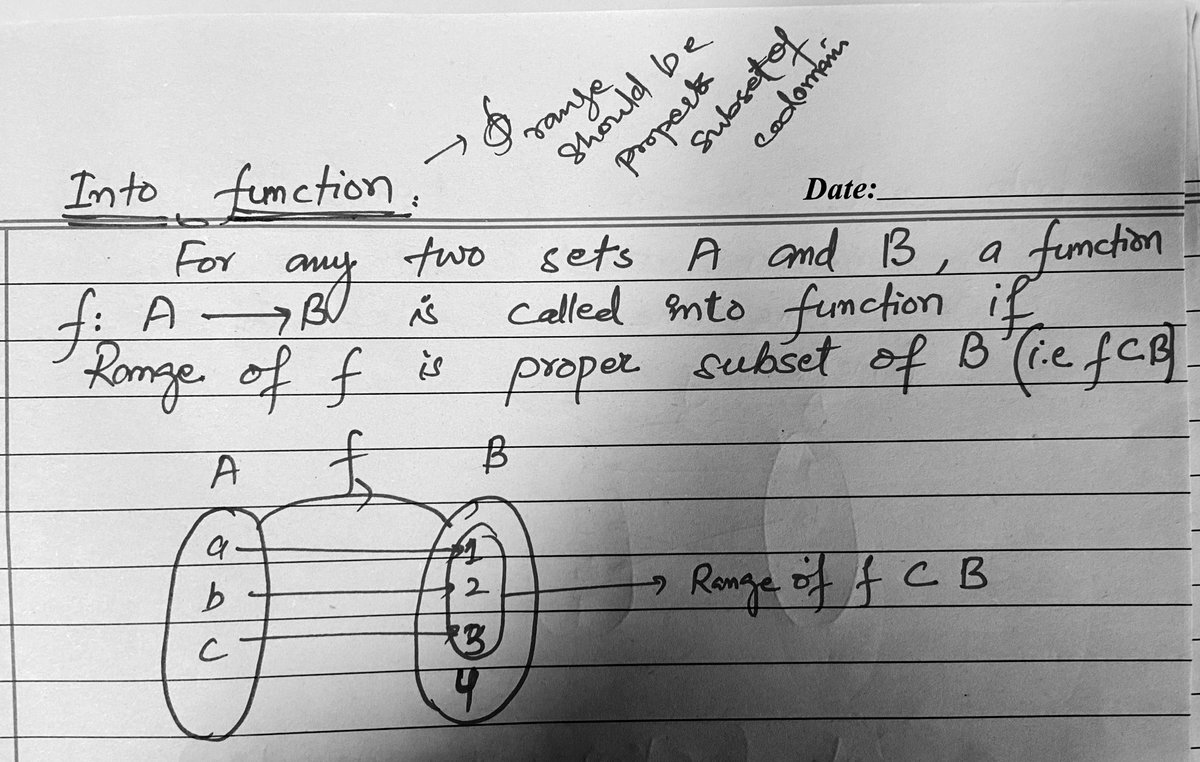 → range
should be
proper
subset of
codomain
Into function :
Date:
For any two sets A and B, a function
f: A → B is called into function if
Range of f is proper subset of B (i.e f ⊂ B)
A f B
a 1
b 2 → Range of f ⊂ B
c 3
4